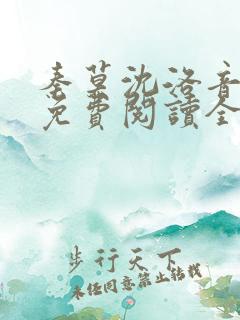 秦墓沈洛音
免費閱讀全
步行天下
未经同意禁止转载